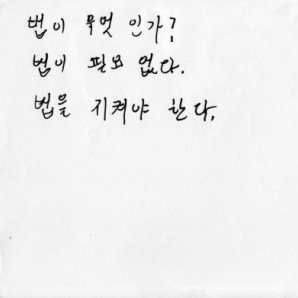 법이 무엇 인가?
법이 필요 없다.
법을 지켜야 한다.